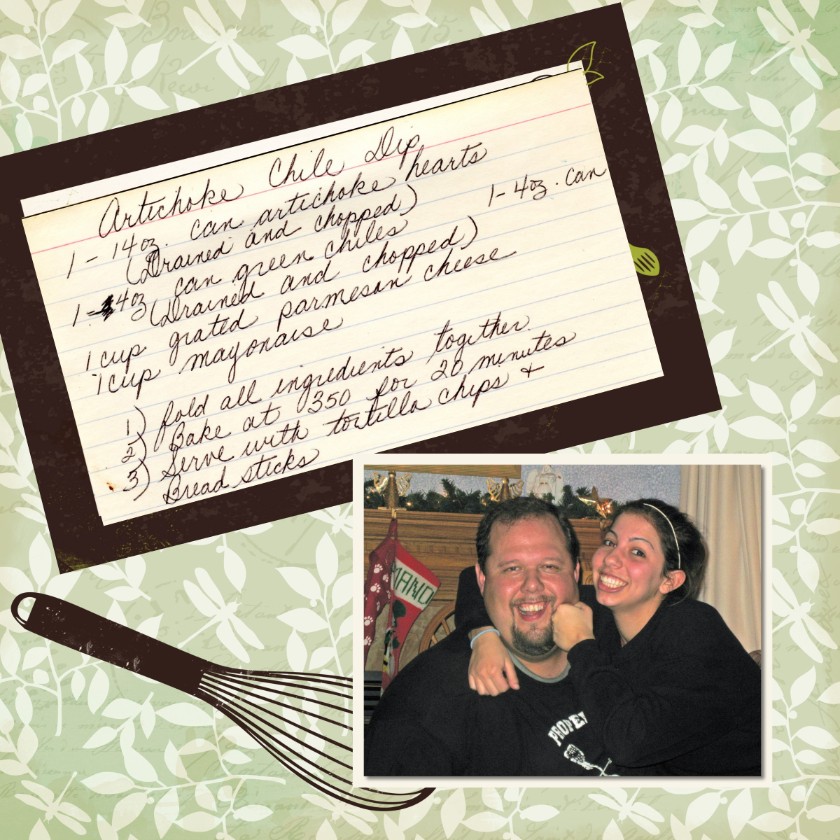 Artichoke Chile Dip
1 - 14oz. can artichoke hearts
(Drained and chopped)
1 - 4oz. can
1 - 4oz can green chiles
(Drained and chopped)
1 cup grated parmesan cheese
1 cup mayonaise
1) fold all ingredients together
2) Bake at 350 for 20 minutes
3) Serve with tortilla chips +
Bread sticks
MANO
PROPER